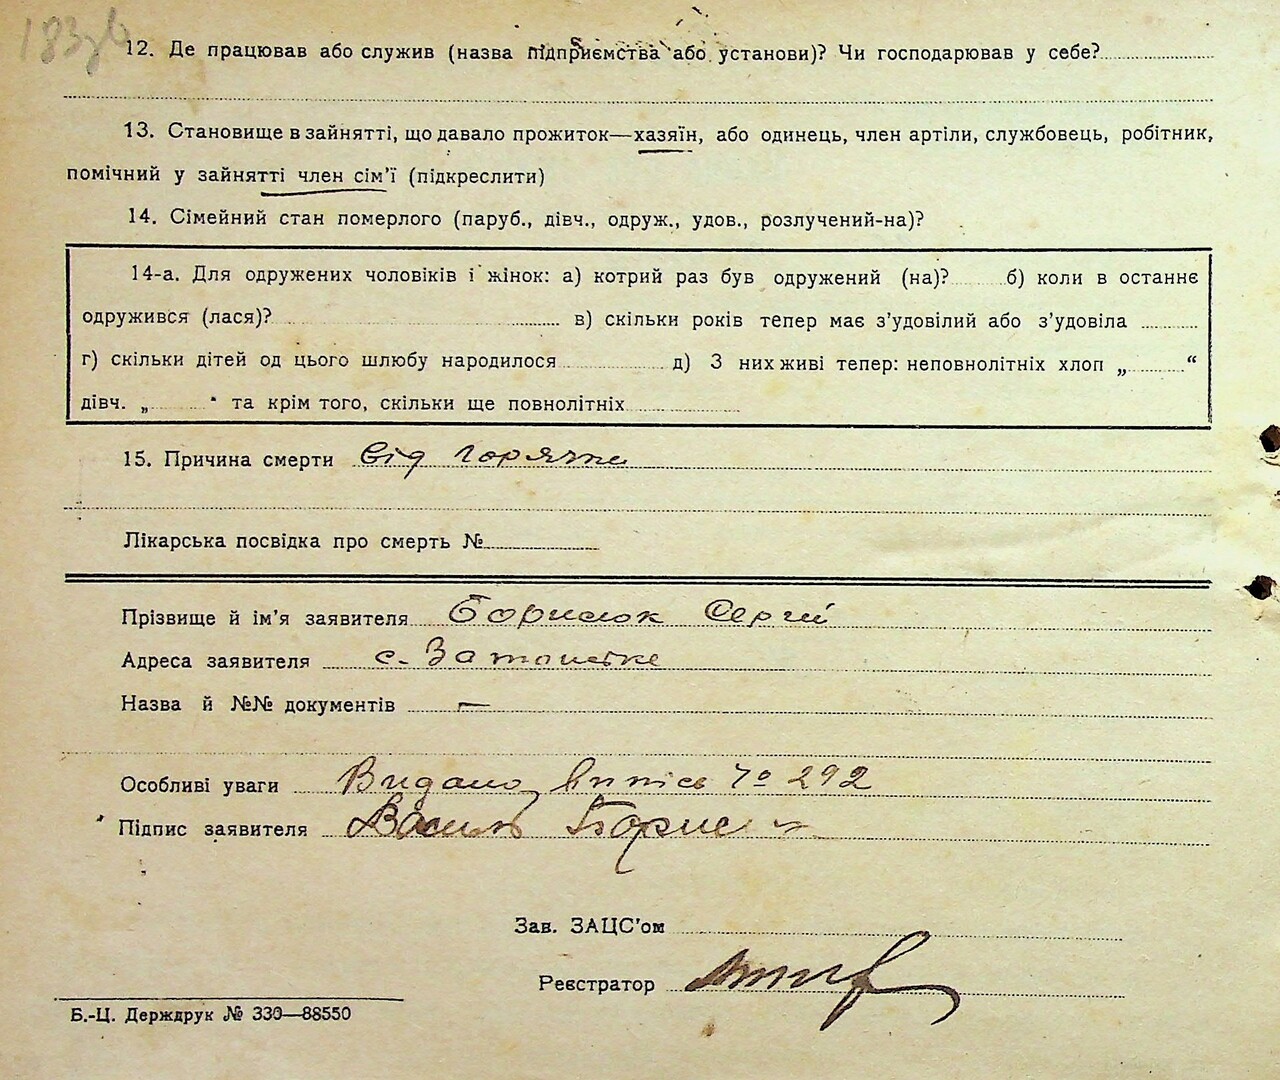 183зв
12. Де працював або служив (назва підприємства або установи)? Чи господарював у себе?
13. Становище в зайнятті, що давало прожиток—хазяїн, або одинець, член артіли, службовець, робітник,
помічний у зайнятті член сім'ї (підкреслити)
14. Сімейний стан померлого (паруб., дівч., одруж., удов., розлучений-на)?
14-а. Для одружених чоловіків і жінок: а) котрий раз був одружений (на)? б) коли в останнє
одружився (лася)? в) скільки років тепер має з'удовілий або з'удовіла
г) скільки дітей од цього шлюбу народилося д) З них живі тепер: неповнолітніх хлоп „ “
дівч. „ “ та крім того, скільки ще повнолітніх
15. Причина смерти від горячки
Лікарська посвідка про смерть №
Прізвище й ім'я заявителя Борисюк Сергій
Адреса заявителя с.
Назва й №№ документів —
Особливі уваги Видано випись № 292
Підпис заявителя Василь
Зав. ЗАЦС'ом
Реєстратор
Б.-Ц. Держдрук № 330—88550